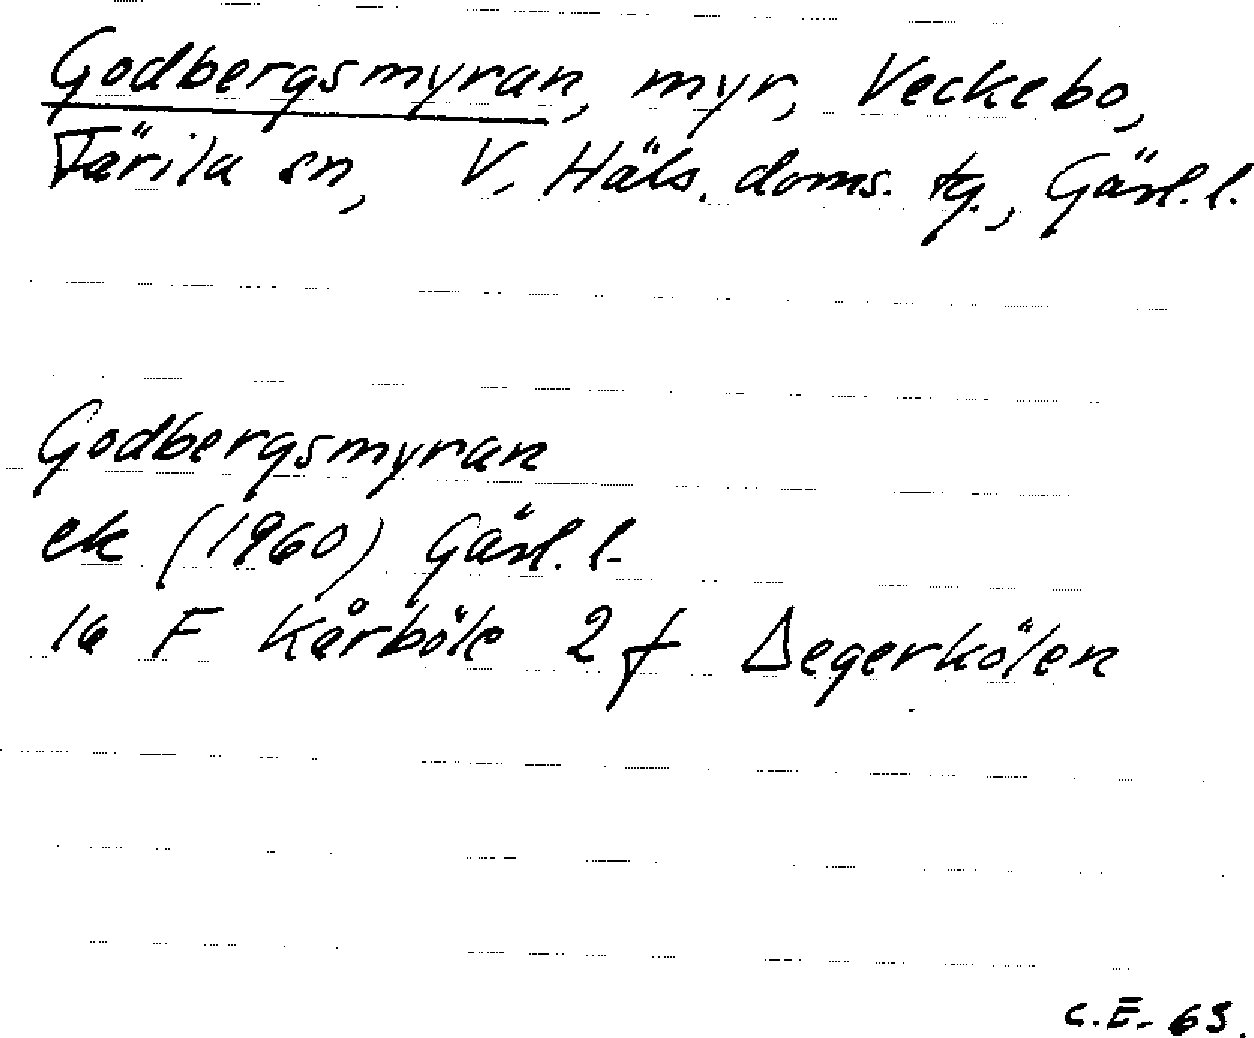 Godbergsmyran, myr, Veckebo,
Färila sn, V. Häls. doms. tg., Gävl. l.
Godbergsmyran
ek (1960) Gävl. l.
la F Kårböle 2 f Δegerkölen
C.E. 63.